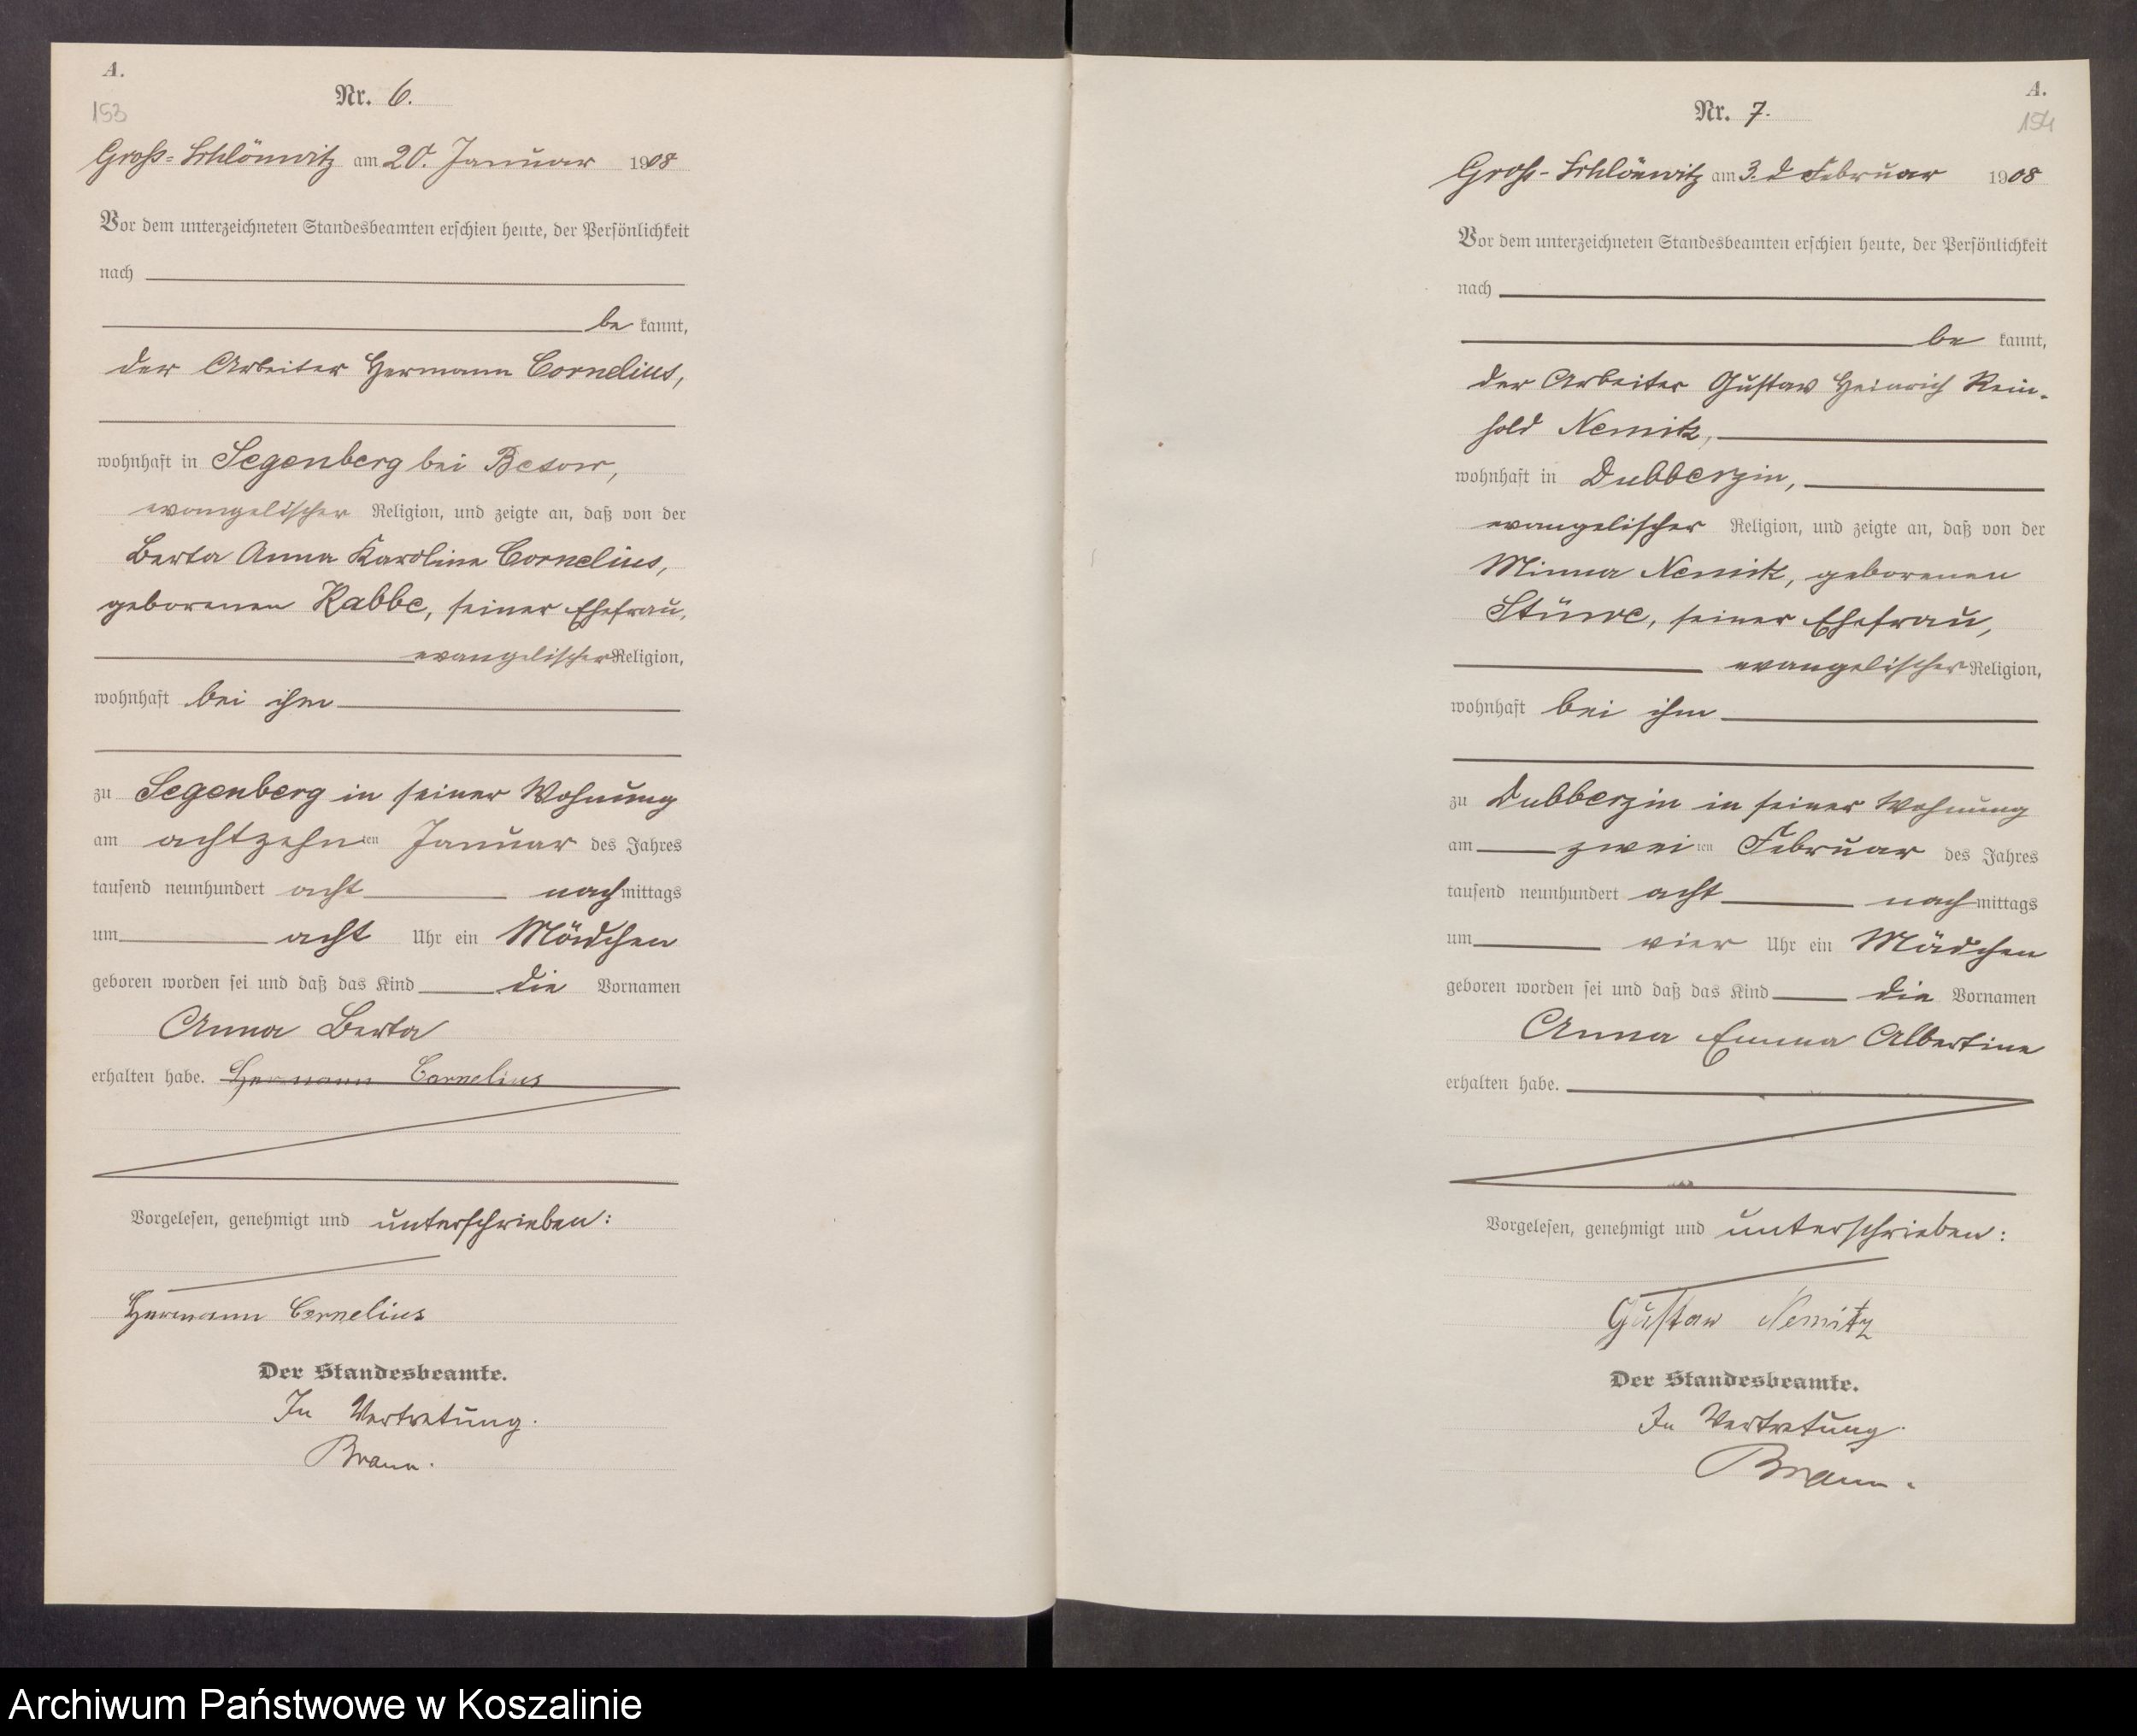 A.
153
Nr. 6.
Groß-Schlönwitz am 20. Januar 1908
Vor dem unterzeichneten Standesbeamten erschien heute, der Persönlichkeit
nach
be kannt,
der Arbeiter Hermann Cornelius,
wohnhaft in Segenberg bei Besow,
evangelischer Religion, und zeigte an, daß von der
Berta Anna Karoline Cornelius,
geborenen Rabbe, seiner Ehefrau,
evangelischer Religion,
wohnhaft bei ihm
zu Segenberg in seiner Wohnung
am achtzehn ten Januar des Jahres
tausend neunhundert acht nach mittags
um acht Uhr ein Mädchen
geboren worden sei und daß das Kind die Vornamen
Anna Berta
erhalten habe. Hermann Cornelius
Vorgelesen, genehmigt und unterschrieben:
Hermann Cornelius
Der Standesbeamte.
In Vertretung.
Braun.
A.
154
Nr. 7.
Groß-Schlönwitz am 3. Februar 1908
Vor dem unterzeichneten Standesbeamten erschien heute, der Persönlichkeit
nach
be kannt,
der Arbeiter Gustav Heinrich Rein-
hold Nemitz,
wohnhaft in Dubberzin,
evangelischer Religion, und zeigte an, daß von der
Minna Nemitz, geborenen
Stüwe, seiner Ehefrau,
evangelischer Religion,
wohnhaft bei ihm
zu Dubberzin in seiner Wohnung
am zwei ten Februar des Jahres
tausend neunhundert acht nach mittags
um vier Uhr ein Mädchen
geboren worden sei und daß das Kind die Vornamen
Anna Emma Albertine
erhalten habe.
Vorgelesen, genehmigt und unterschrieben:
Gustav Nemitz
Der Standesbeamte.
In Vertretung.
Braun.
Archiwum Państwowe w Koszalinie